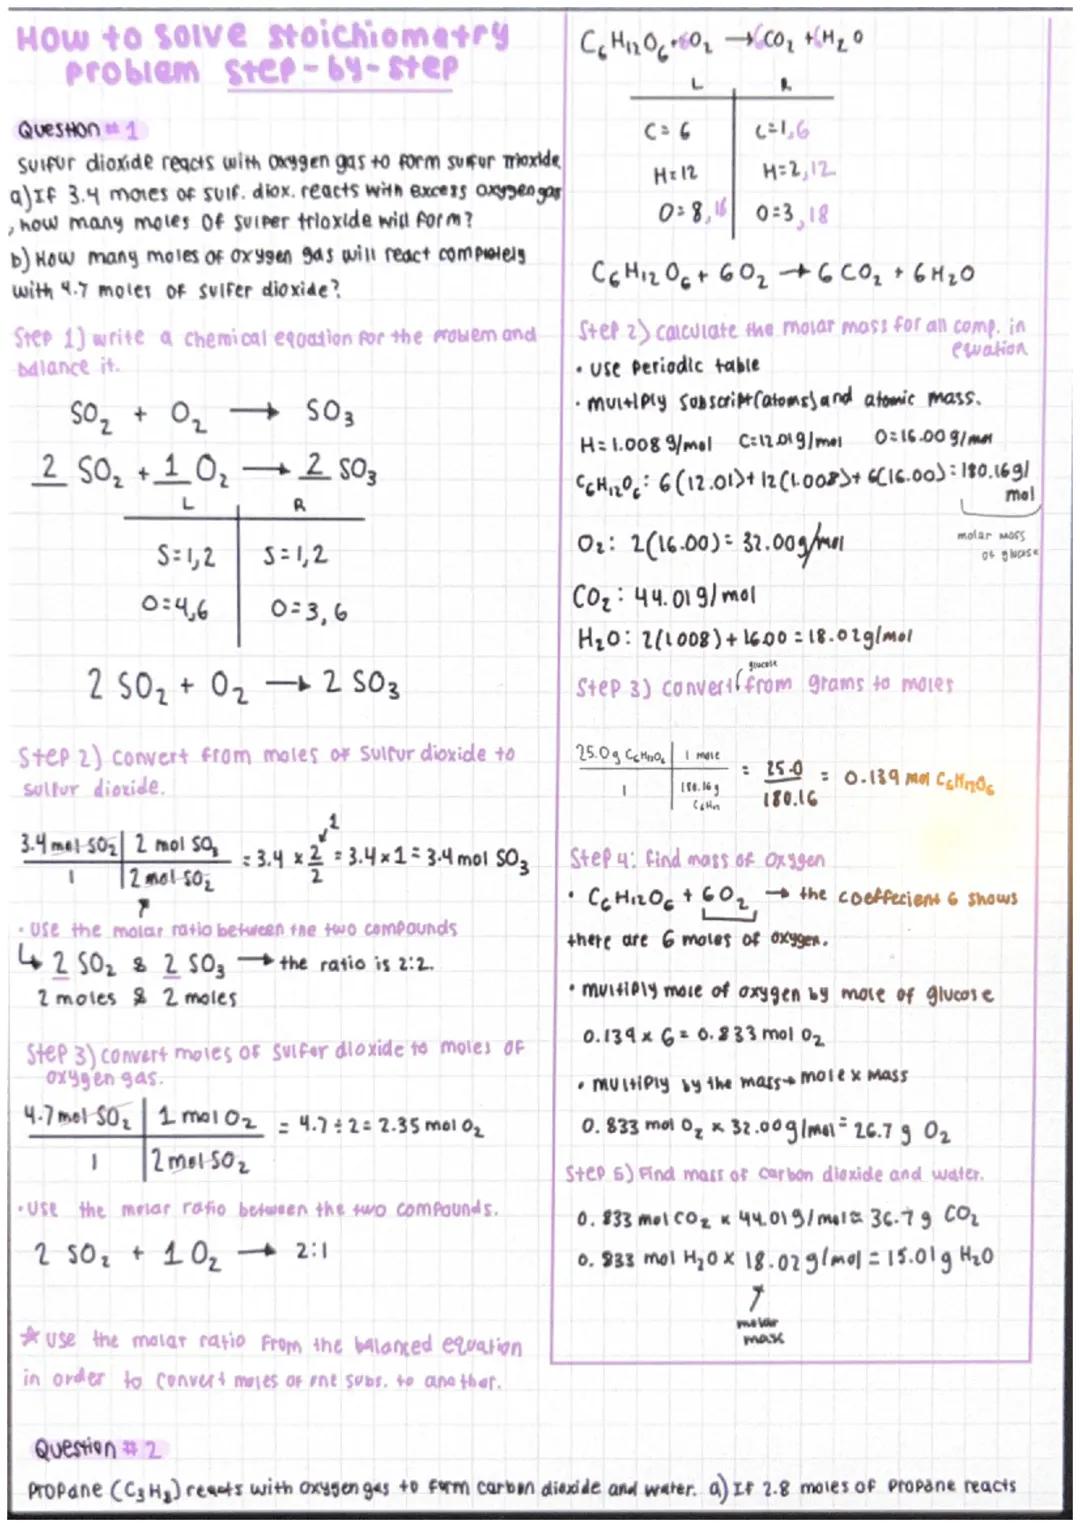 How to solve stoichiometry
problem step-by-step
Question #1
Sulfur dioxide reacts with oxygen gas to form sulfur trioxide
a) If 3.4 moles of sulf. diox. reacts with excess oxygen gas
, how many moles of sulfer trioxide will form?
b) How many moles of oxygen gas will react completely
with 4.7 moles of sulfer dioxide?
Step 1) write a chemical equation for the problem and
balance it.
SO₂ + O₂ → SO₃
2 SO₂ + 1 O₂ → 2 SO₃
L R
S=1,2 S=1,2
O=4,6 O=3,6
2 SO₂ + O₂ → 2 SO₃
Step 2) convert from moles of sulfur dioxide to
sulfur dioxide.
1
3.4 mol SO₂ 2 mol SO₃ = 3.4 × 2/2 = 3.4 × 1 = 3.4 mol SO₃
1 2 mol SO₂
• Use the molar ratio between the two compounds
↳ 2 SO₂ & 2 SO₃ → the ratio is 2:2.
2 moles & 2 moles
Step 3) convert moles of sulfer dioxide to moles of
oxygen gas.
4.7 mol SO₂ 1 mol O₂ = 4.7 ÷ 2 = 2.35 mol O₂
1 2 mol SO₂
• Use the molar ratio between the two compounds.
2 SO₂ + 1 O₂ → 2:1
☆ Use the molar ratio from the balanced equation
in order to convert moles of one subs. to another.
C₆H₁₂O₆ + 6O₂ → 6CO₂ + 6H₂O
L R
C=6 C=1,6
H=12 H=2,12
O=8,18 O=3,18
C₆H₁₂O₆ + 6O₂ → 6CO₂ + 6H₂O
Step 2) calculate the molar mass for all comp. in
equation
• use periodic table
• multiply subscript (atoms) and atomic mass.
H=1.008 g/mol C=12.01 g/mol O=16.00 g/mol
C₆H₁₂O₆: 6(12.01)+12(1.008)+6(16.00)=180.16 g/
mol
molar mass
of glucose
O₂: 2(16.00)=32.00 g/mol
CO₂: 44.01 g/mol
H₂O: 2(1.008)+16.00=18.02 g/mol
glucose
Step 3) convert from grams to moles
25.0 g C₆H₁₂O₆ 1 mole = 25.0 = 0.139 mol C₆H₁₂O₆
1 180.16 g 180.16
Step 4: find mass of oxygen
• C₆H₁₂O₆ + 6O₂ → the coeffecient 6 shows
there are 6 moles of oxygen.
• multiply mole of oxygen by mole of glucose
0.139 × 6 = 0.833 mol O₂
• multiply by the mass → mole x mass
0.833 mol O₂ × 32.00 g/mol = 26.7 g O₂
Step 5) Find mass of carbon dioxide and water.
0.833 mol CO₂ × 44.01 g/mol = 36.7 g CO₂
0.833 mol H₂O × 18.02 g/mol = 15.01 g H₂O
molar
mass
Question #2
Propane (C₃H₈) reacts with oxygen gas to form carbon dioxide and water. a) If 2.8 moles of propane reacts